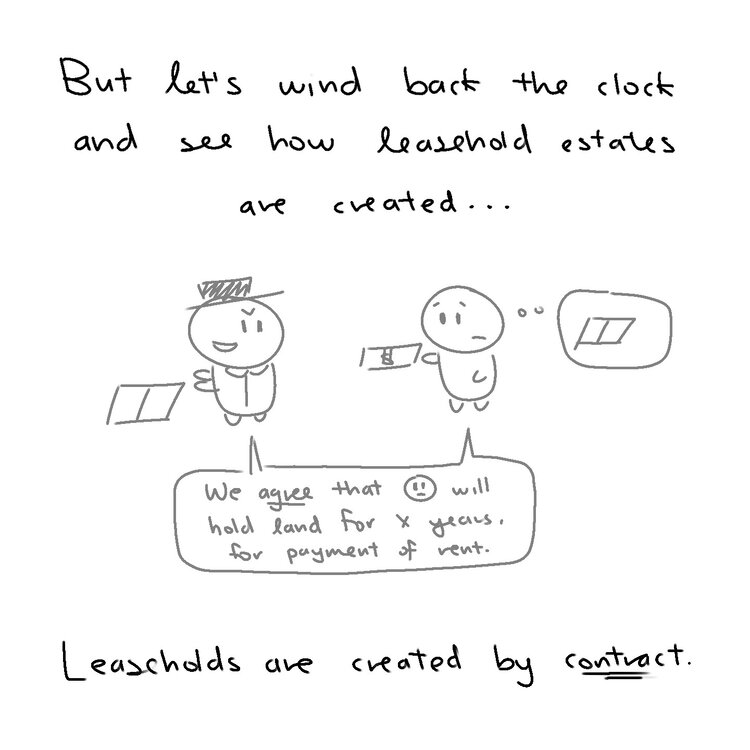 But let's wind back the clock
and see how leasehold estates
are created...
We agree that will
hold land for x years,
for payment of rent.
Leaseholds are created by contract.